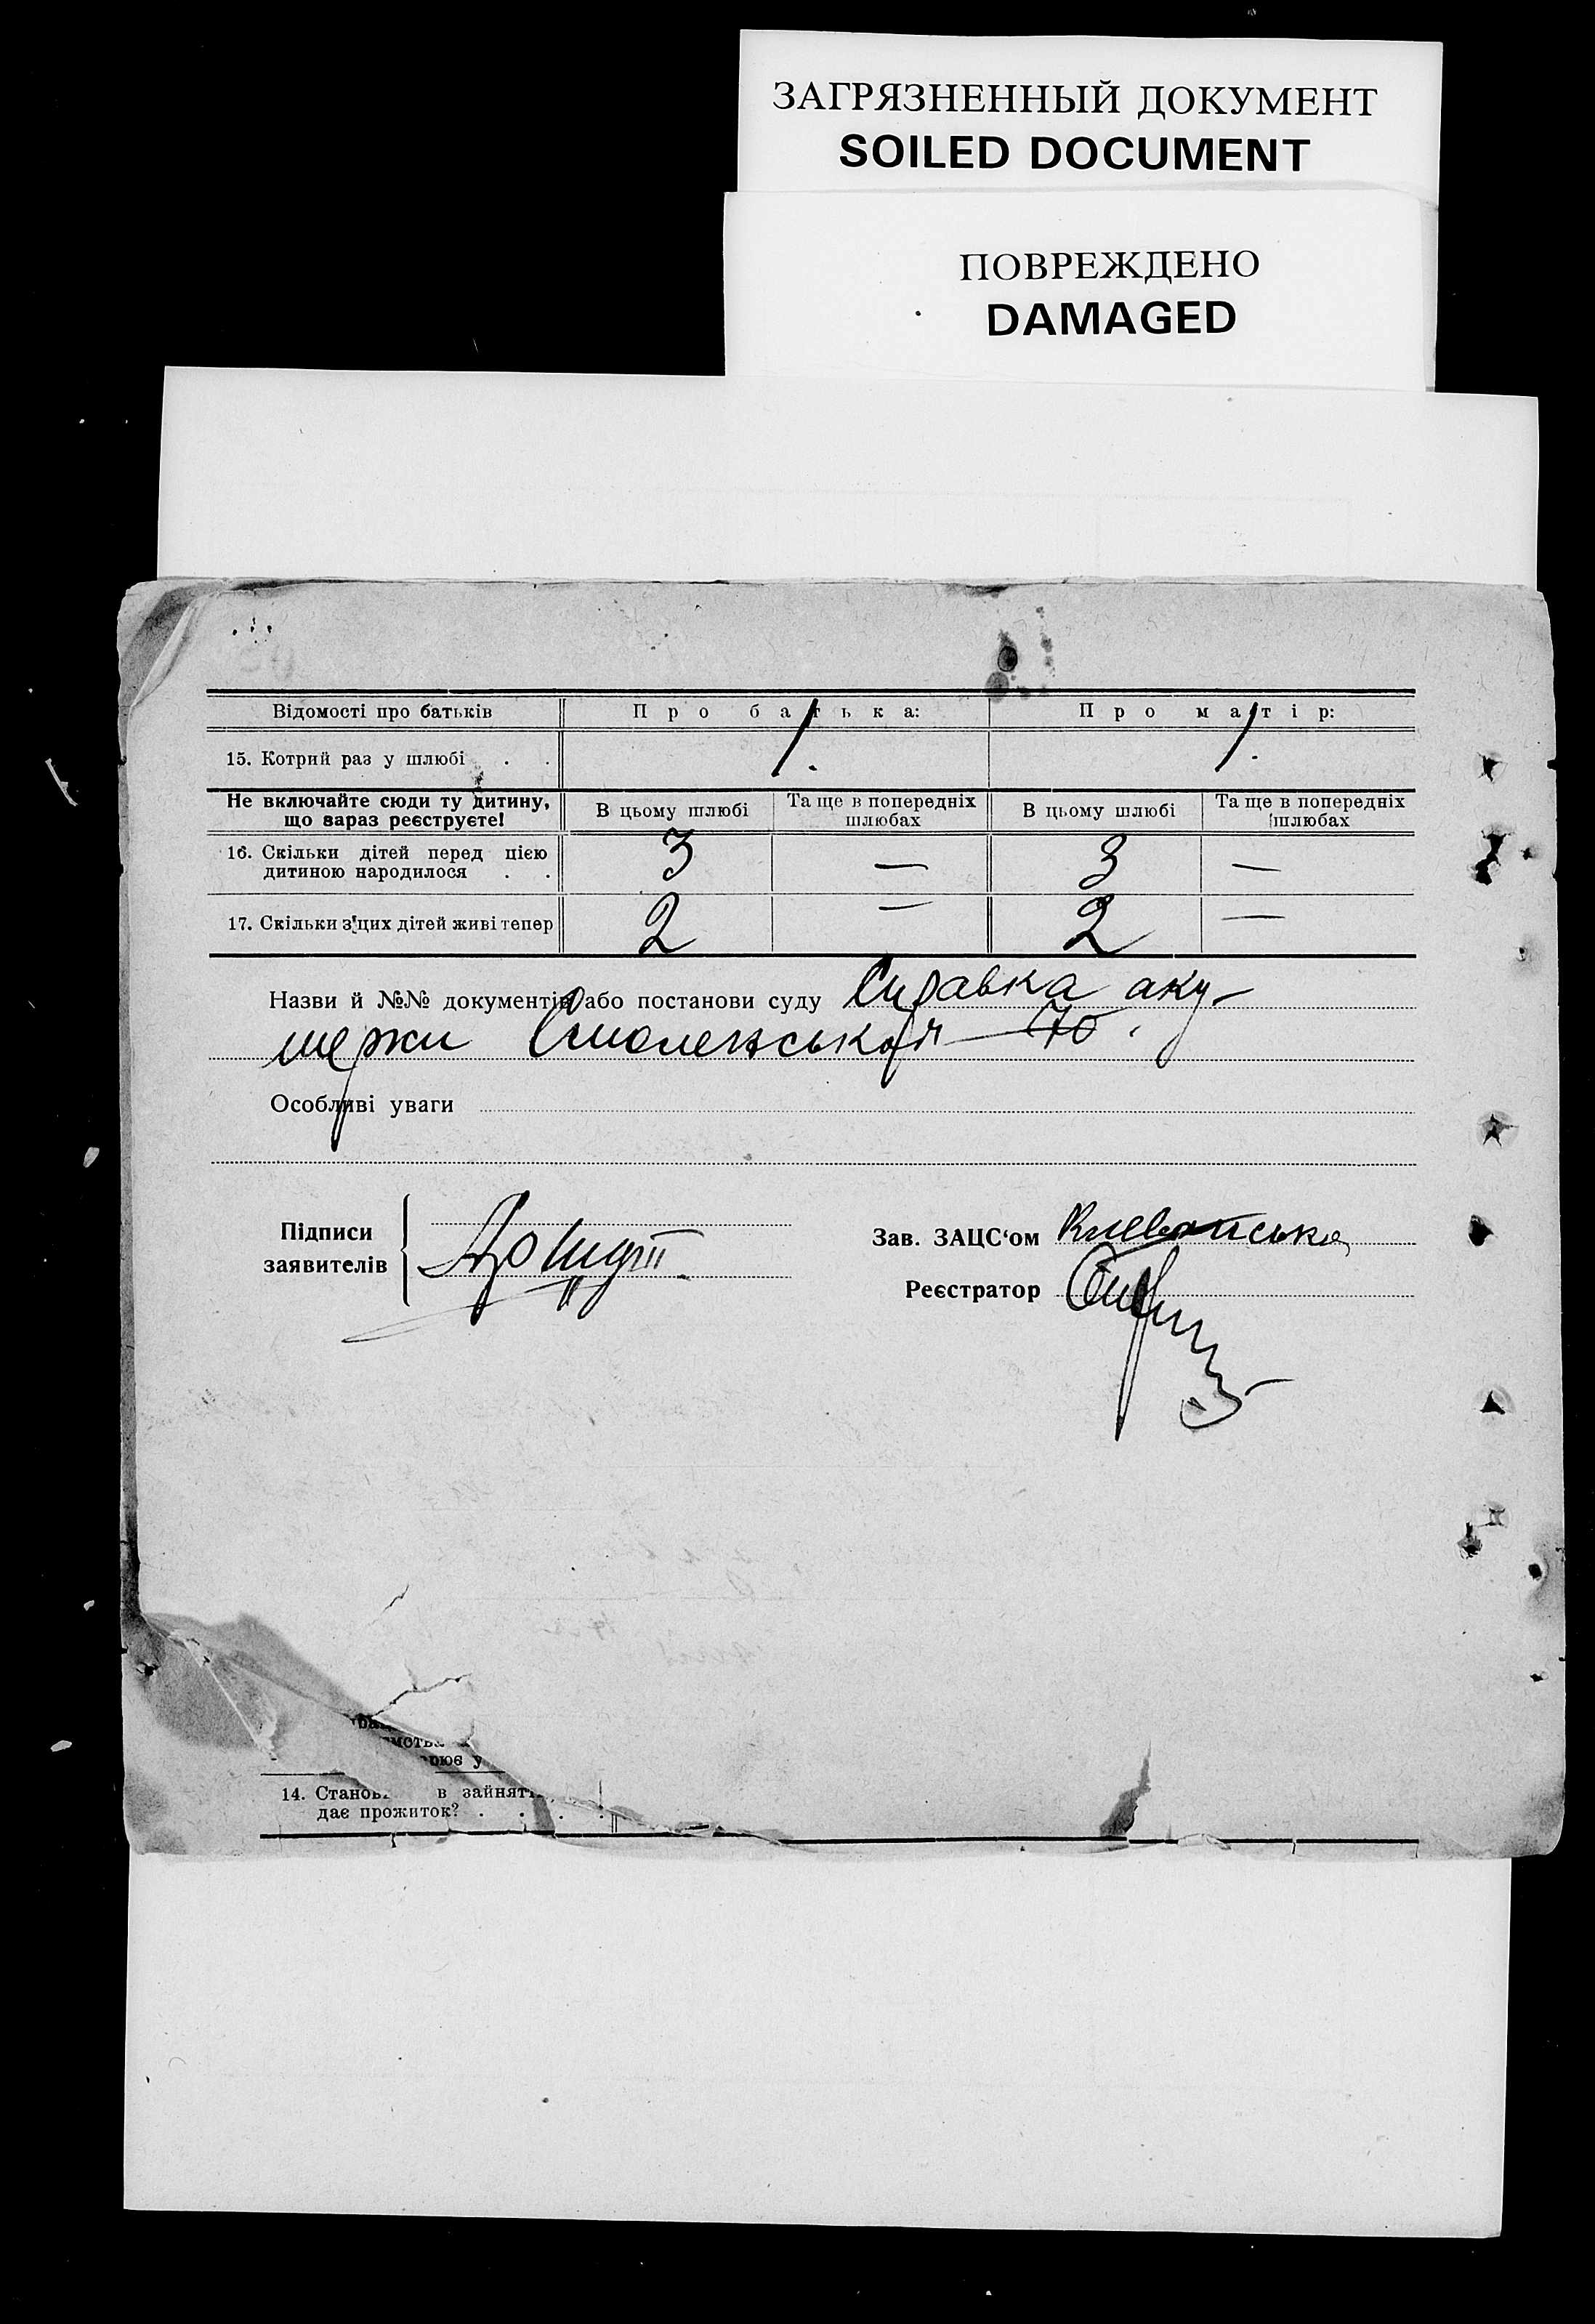 ЗАГРЯЗНЕННЫЙ ДОКУМЕНТ
SOILED DOCUMENT
ПОВРЕЖДЕНО
DAMAGED
Відомості про батьків Про батька: Про матір:
15. Котрий раз у шлюбі . . 1. 1.
Не включайте сюди ту дитину, що зараз реєструєте! В цьому шлюбі Та ще в попередніх шлюбах В цьому шлюбі Та ще в попередніх шлюбах
16. Скільки дітей перед цією дитиною народилося . . 3 — 3 —
17. Скільки з цих дітей живі тепер 2 — 2 —
Назви й №№ документів або постанови суду Справка аку-
шерки Смоленської 70.
Особливі уваги
Підписи
заявителів
Зав. ЗАЦС‘ом
Реєстратор
14. в зайнят
дає прожиток? . . . .